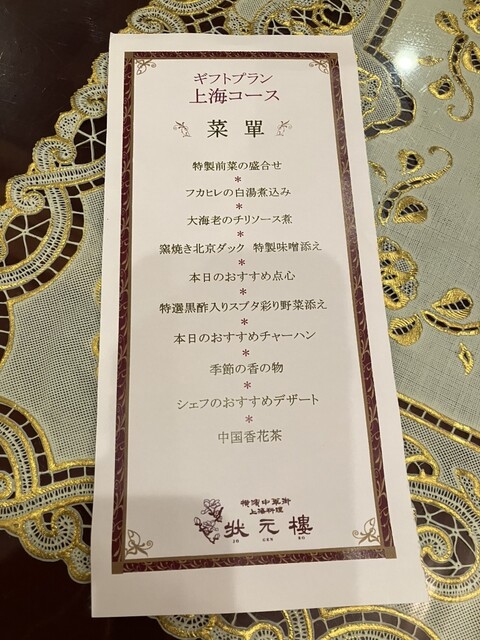 ギフトプラン
上海コース
菜單
特製前菜の盛合せ
*
フカヒレの白湯煮込み
*
大海老のチリソース煮
*
窯焼き北京ダック 特製味噌添え
*
本日のおすすめ点心
*
特選黒酢入りスブタ彩り野菜添え
*
本日のおすすめチャーハン
*
季節の香の物
*
シェフのおすすめデザート
*
中国香花茶
横濱中華街
上海料理
状元樓
JO GEN RO